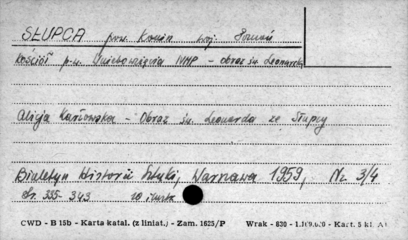 SŁUPCA pow. Konin woj. Poznań
Kościół p.w. Wniebowzięcia NMP - obraz św. Leonarda
Alicja Karłowska - Obraz św. Leonarda ze Słupcy
Biuletyn Historii Sztuki, Warszawa 1959, Nr. 3/4
str. 335-343 10 ilustr.
CWD - B 15b - Karta katal. (z liniat.) - Zam. 1625/P Wrak - 830 - - Kart. 5 kl. A1